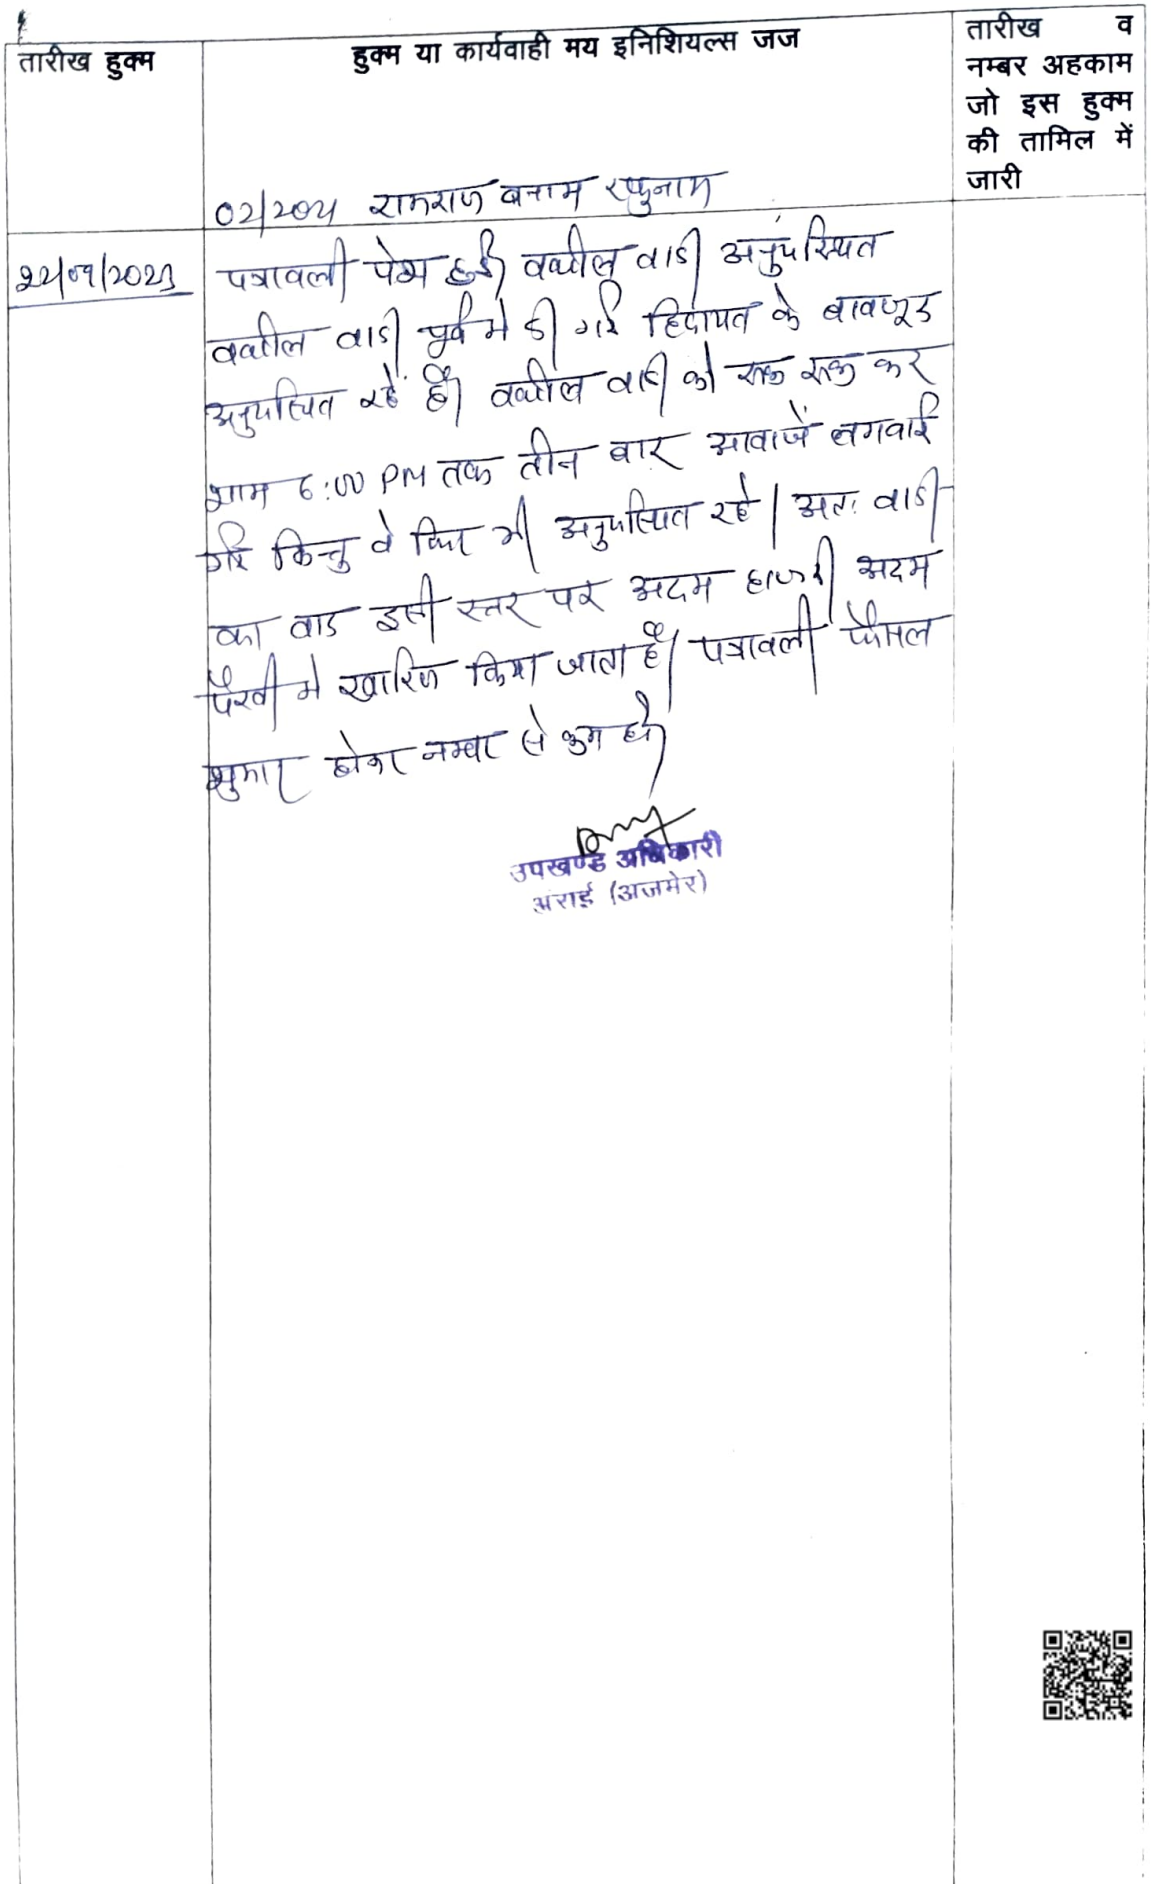 तारीख हुक्म
हुक्म या कार्यवाही मय इनिशियल्स जज
तारीख व
नम्बर अहकाम
जो इस हुक्म
की तामिल में
जारी
रामराज बनाम
पत्रावली पेश हुई। वकील वादी अनुपस्थित
वकील वादी पूर्व में दी गई हिदायत के बावजूद
अनुपस्थित रहें है। वकील वादी को रूक रूक कर
शाम 6:00 PM तक तीन बार आवाजें लगवाई
गई किन्तु वे फिर भी अनुपस्थित रहे। अतः वादी
का वाद इसी स्तर पर अदम हाजरी अदम
पैरवी में खारिज किया जाता है। पत्रावली फैसल
शुमार होकर नम्बर से कम हो।
उपखण्ड अधिकारी
अराई (अजमेर)